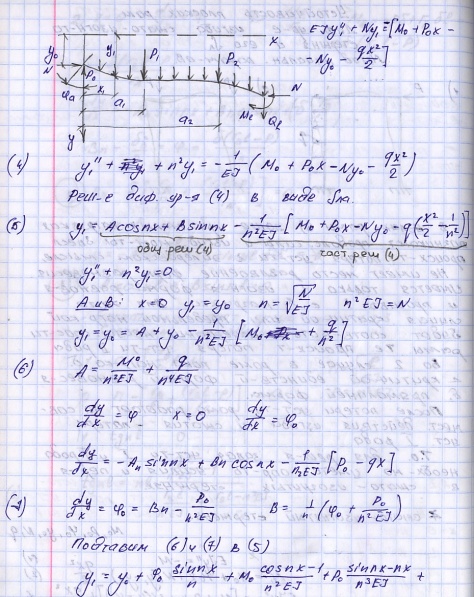 x EJy₁'' + Ny₁ = [M₀ + P₀x −
− Ny₀ − qx²/2]
y₀ y₁ P₁ P₂
N P₀ N
φ₀ x₁ a₁ Q
y a₂
(4) y₁'' + n²y₁ = −1/EJ (M₀ + P₀x − Ny₀ − qx²/2)
Реш-е диф. ур-я (4) в виде
(5) y₁ = A cos nx + B sin nx − 1/n²EJ [M₀ + P₀x − Ny₀ − q(x²/2 − 1/n²)]
общ. реш (4) част. реш (4)
y₁'' + n²y₁ = 0
A и B: x = 0 y₁ = y₀ n = √(N/EJ) n²EJ = N
y₁ = y₀ = A + y₀ − 1/n²EJ [M₀ + q/n²]
(6) A = M₀/n²EJ + q/n⁴EJ
dy/dx = φ x = 0 dy/dx = φ₀
dy/dx = −An sin nx + Bn cos nx − 1/n²EJ [P₀ − qx]
(7) dy/dx = φ₀ = Bn − P₀/n²EJ B = 1/n (φ₀ + P₀/n²EJ)
Подставим (6) и (7) в (5)
y₁ = y₀ + φ₀ sin nx/n + M₀ cos nx − 1/n²EJ + P₀ sin nx − nx/n³EJ +